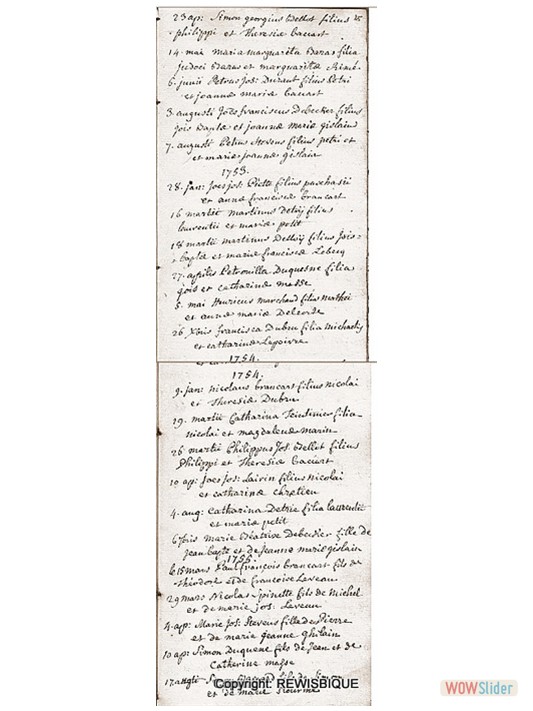 23 ap: Simon georgius Dellot filius 25
philippi et Theresiæ bacuart
14. mai maria marguarita Daras filia
judoci Daras et marguaritæ
6. junii Petrus jos: Durant filius Petri
et joannæ mariæ bacuart
3 augusti joes franciscus Debecker filius
jois baptæ et joannæ mariæ gislain
7. augusti Petrus Stevens filius petri et
et mariæ joannæ gislain
1753.
28. jan: joes jos: Piette filius paschasii
et annæ franciscæ brancart
16 martii martinus Detry filius
laurentii et mariæ petit
18 martii martinus Delloy filius jois
baptæ et mariæ franciscæ
27. aprilis Petronilla Duquesne filia
jois et catharinæ masse
5. mai Henricus marchand filius
et annæ mariæ
26 Xbris francisca Dubru filia michaelis
et catharinæ Lepoivre
1754.
1754.
9. jan: nicolaus brancart filius nicolai
et Theresiæ Dubru
19. martii Catharina Teintinier filia
nicolai et magdalenæ marin
26 martii Philippus Jos: Dellot filius
Philippi et Theresiæ bacuart
10 ap: joes jos: Lairin filius nicolai
et catharinæ chretien
4. aug: Catharina Detrie filia laurentii
et mariæ petit
6 7bris marie Béatrice Debecker fille de
jean bapte et de jeanne marie gislain
1755.
le 15 mars Paul françois brancart fils de
théodore et de francoise Laseau
29 mars Nicolas Spinette fils de Michel
et de marie jos:
4. ap: Marie Jos: Stevens fille de Pierre
et de marie jeanne Ghilain
10 ap: Simon Duquene fils de Jean et de
Catherine masse
17. augte
et de marie
Copyright: REWISBIQUE
WOWSlider